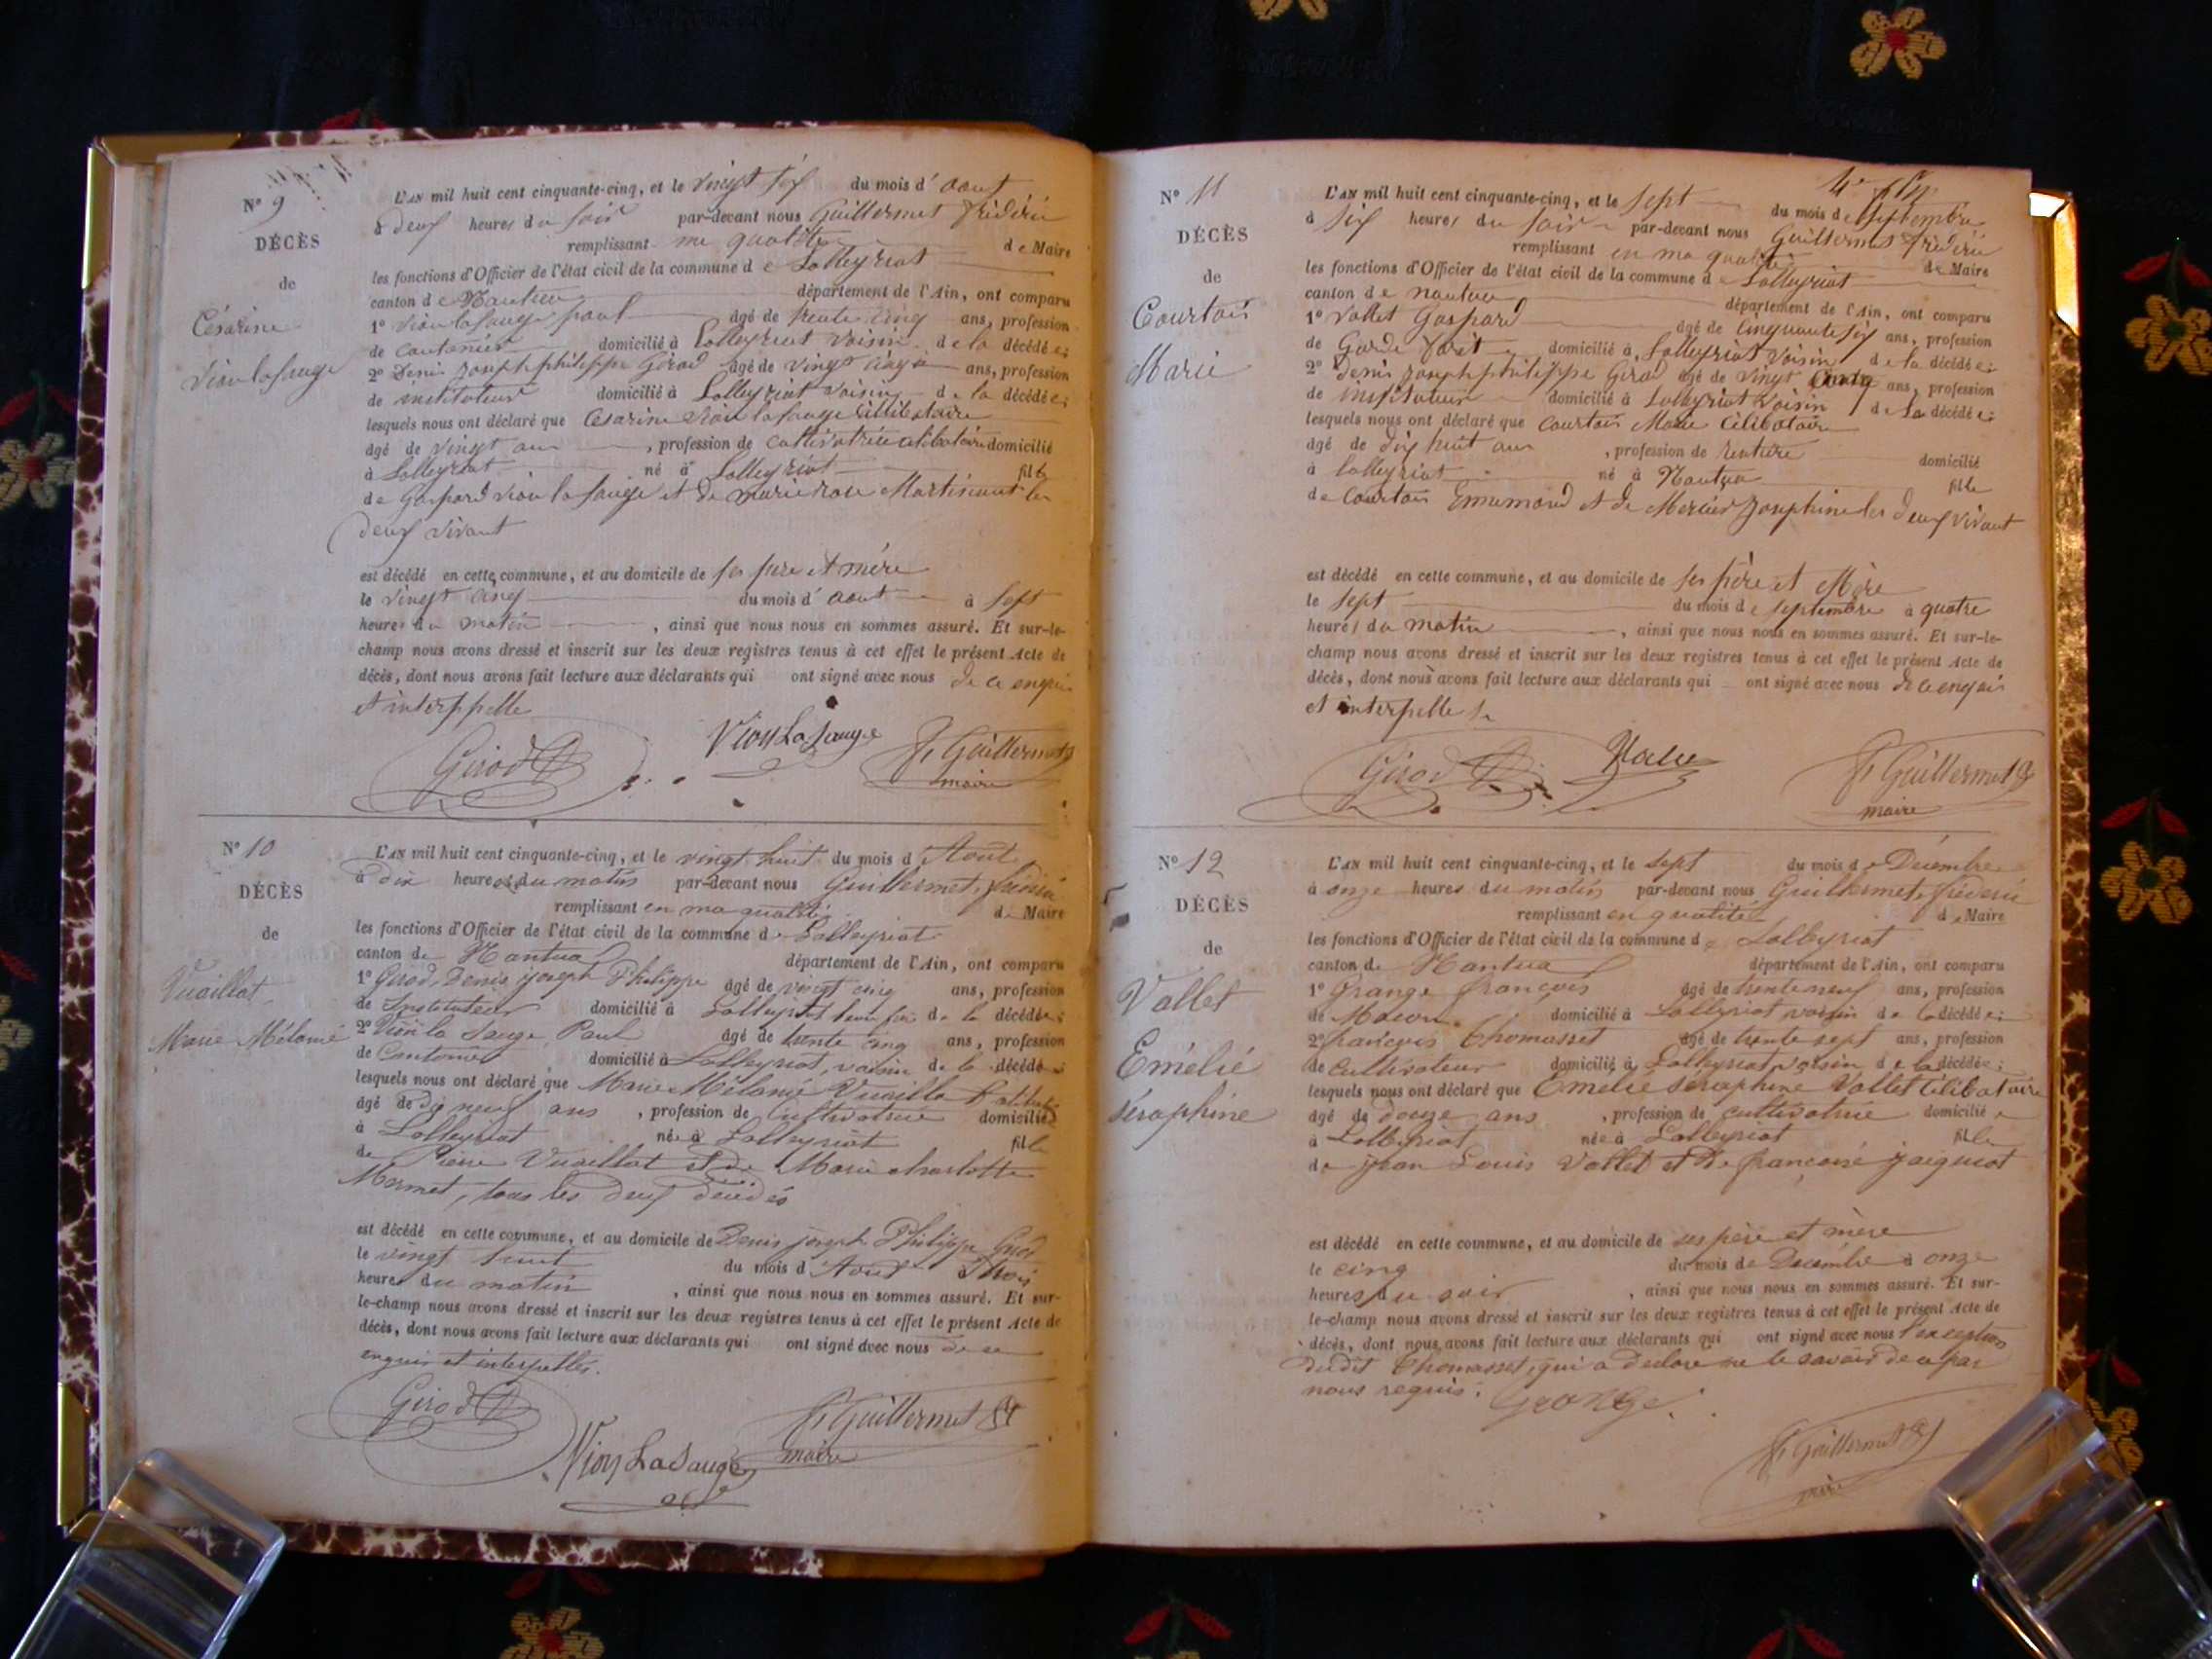 N° 9
DÉCÈS
de
Césarine
Vion la sauge
L'AN mil huit cent cinquante-cinq, et le vingt six du mois d' aout
à deux heures du soir par-devant nous Guillermet frédéric
remplissant ma qualité de Maire
les fonctions d'Officier de l'état civil de la commune de Lalleyriat
canton de Nantua département de l'Ain, ont comparu
1° Vion la sauge paul âgé de trente cinq ans, profession
de cantonier domicilié à Lalleyriat voisin de la décédée;
2° Denis joseph philippe Girod âgé de vingt cinq ans, profession
de instituteur domicilié à Lalleyriat voisin de la décédée;
lesquels nous ont déclaré que Césarine Vion la sauge célibataire
âgé de vingt ans, profession de cultivatrice célibataire domicilié
à Lalleyriat né à Lalleyriat fille
de Gaspard Vion la sauge et de marie rose Martinant les
deux vivant
est décédé en cette commune, et au domicile de ses père et mère
le vingt cinq du mois d' aout à sept
heures du matin, ainsi que nous nous en sommes assuré. Et sur-le-
champ nous avons dressé et inscrit sur les deux registres tenus à cet effet le présent Acte de
décès, dont nous avons fait lecture aux déclarants qui ont signé avec nous de ce enquis
et interppelle
Girod VionLaSauge F. Guillermet
maire
N° 10
DÉCÈS
de
Vuaillat
Marie Mélanie
L'AN mil huit cent cinquante-cinq, et le vingt huit du mois d' Août
à dix heures du matin par-devant nous Guillermet, frédéric
remplissant en ma qualité de Maire
les fonctions d'Officier de l'état civil de la commune de Lalleyriat
canton de Nantua département de l'Ain, ont comparu
1° Girod, Denis joseph Philippe âgé de vingt cinq ans, profession
de Instituteur domicilié à Lalleyriat de la décédée;
2° Vion la Sauge Paul âgé de trente cinq ans, profession
de Cantonier, domicilié à Lalleyriat, voisin de la décédée
lesquels nous ont déclaré que Marie Mélanie Vuaillat
âgé de dix neuf ans, profession de Cultivatrice domiciliée
à Lalleyriat née à Lalleyriat fille
de Pierre Vuaillat et de Marie charlotte
Mermet, tous les deux décédés
est décédé en cette commune, et au domicile de Denis joseph Philippe Girod
le vingt huit du mois d' Août à trois
heures du matin, ainsi que nous nous en sommes assuré. Et sur-
le-champ nous avons dressé et inscrit sur les deux registres tenus à cet effet le présent Acte de
décès, dont nous avons fait lecture aux déclarants qui ont signé avec nous de ce
enquis et interpellés.
Girod F. Guillermet
VionLaSauge maire
N° 11
DÉCÈS
de
Courtois
Marie
L'AN mil huit cent cinquante-cinq, et le sept du mois de septembre
à six heures du soir par-devant nous Guillermet frédéric
remplissant en ma qualité de Maire
les fonctions d'Officier de l'état civil de la commune de Lalleyriat
canton de nantua département de l'Ain, ont comparu
1° Vallet Gaspard âgé de cinquante six ans, profession
de Garde foret domicilié à Lalleyriat voisin de la décédée;
2° denis joseph philippe Girod âgé de vingt cinq ans, profession
de instituteur domicilié à Lalleyriat voisin de la décédée;
lesquels nous ont déclaré que Courtois Marie Célibataire
âgé de dix huit ans, profession de rentière domicilié
à lalleyriat né à Nantua fille
de Courtois Emmemond et de Mercier Josephine les deux vivant
est décédé en cette commune, et au domicile de ses père et Mère
le sept du mois de septembre à quatre
heures du matin, ainsi que nous nous en sommes assuré. Et sur-le-
champ nous avons dressé et inscrit sur les deux registres tenus à cet effet le présent Acte de
décès, dont nous avons fait lecture aux déclarants qui ont signé avec nous de ce enquis
et interpelle
Girod F. Guillermet
maire
N° 12
DÉCÈS
de
Vallet
Emélie
Séraphine
L'AN mil huit cent cinquante-cinq, et le sept du mois de Décembre
à onze heures du matin par-devant nous Guillermet, frédéric
remplissant en qualité de Maire
les fonctions d'Officier de l'état civil de la commune de Lalleyriat
canton de Nantua département de l'Ain, ont comparu
1° Grange françois âgé de trente neuf ans, profession
de Macon domicilié à Lalleyriat voisin de la décédée;
2° françois Thomasset âgé de trente sept ans, profession
de Cultivateur domicilié à Lalleyriat voisin de la décédée;
lesquels nous ont déclaré que Emélie Séraphine Vallet Célibataire
âgé de douze ans, profession de cultivatrice domicilié
à Lalleyriat née à Lalleyriat fille
de jean Louis Vallet et de françoise jacquiot
est décédé en cette commune, et au domicile de ses père et mère
le cinq du mois de Décembre à onze
heures du soir, ainsi que nous nous en sommes assuré. Et sur-
le-champ nous avons dressé et inscrit sur les deux registres tenus à cet effet le présent Acte de
décès, dont nous avons fait lecture aux déclarants qui ont signé avec nous l'exception
dudit Thomasset, qui a déclaré ne le savoir de ce par
nous requis.
Grange
F. Guillermet